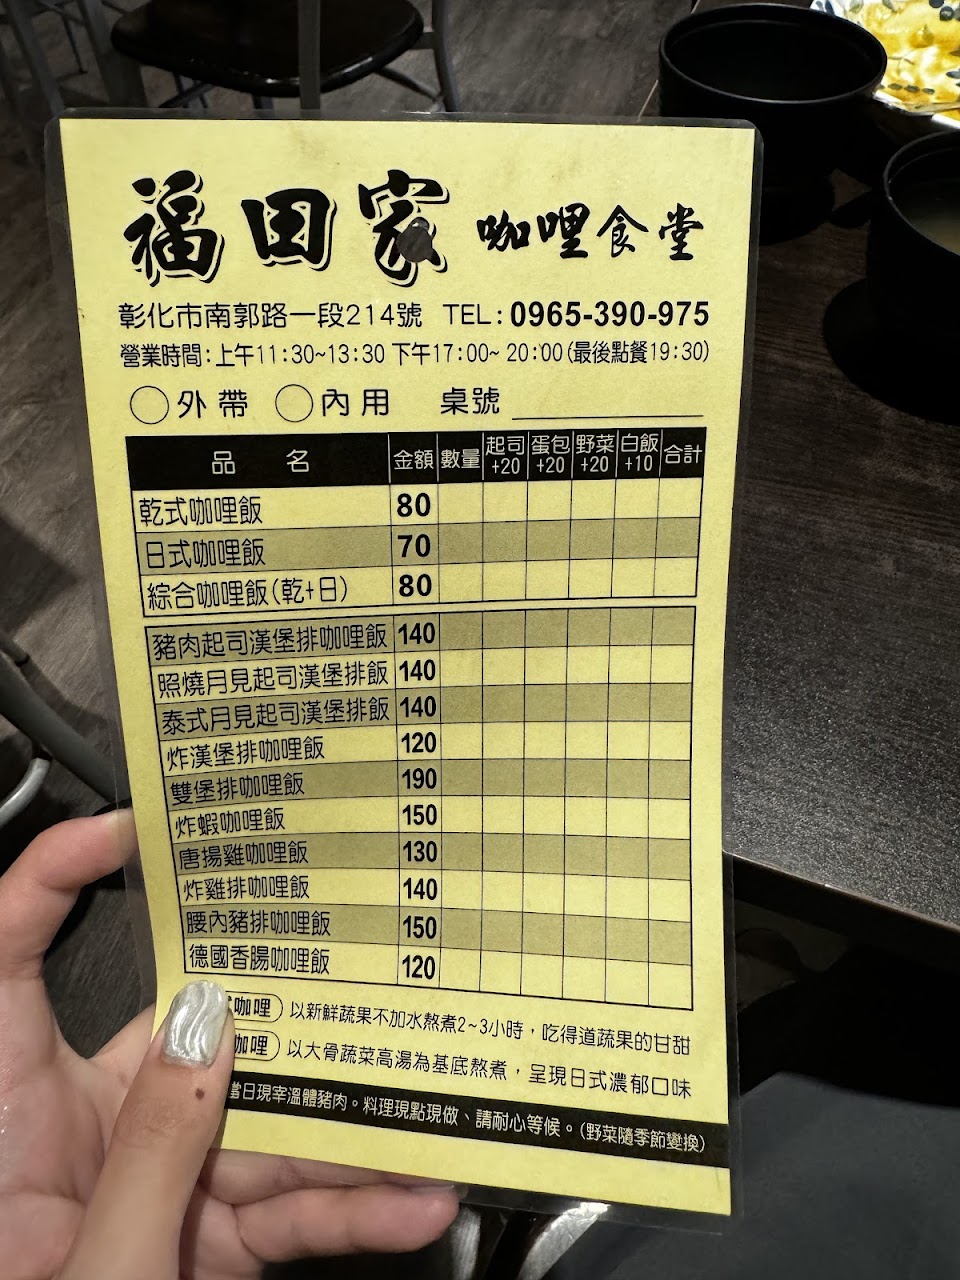 福田家 咖哩食堂
彰化市南郭路一段214號 TEL:0965-390-975
營業時間:上午11:30~13:30 下午17:00~20:00(最後點餐19:30)
外帶 內用 桌號
品名 金額 數量 起司+20 蛋包+20 野菜+20 白飯+10 合計
乾式咖哩飯 80
日式咖哩飯 70
綜合咖哩飯(乾+日) 80
豬肉起司漢堡排咖哩飯 140
照燒月見起司漢堡排飯 140
泰式月見起司漢堡排飯 140
炸漢堡排咖哩飯 120
雙堡排咖哩飯 190
炸蝦咖哩飯 150
唐揚雞咖哩飯 130
炸雞排咖哩飯 140
腰內豬排咖哩飯 150
德國香腸咖哩飯 120
咖哩 以新鮮蔬果不加水熬煮2~3小時，吃得道蔬果的甘甜
咖哩 以大骨蔬菜高湯為基底熬煮，呈現日式濃郁口味
當日現宰溫體豬肉。料理現點現做、請耐心等候。(野菜隨季節變換)